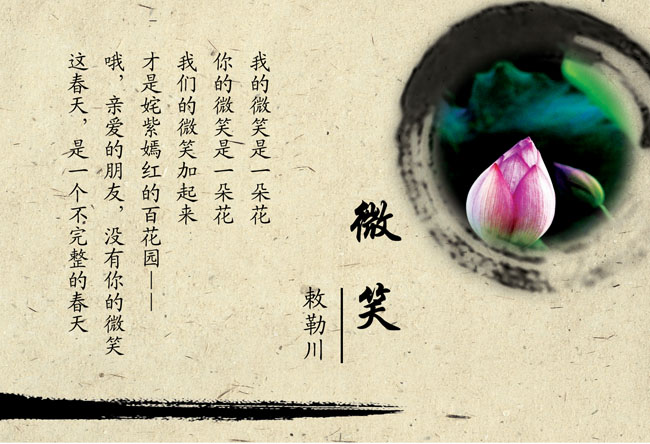 微笑
敕勒川
我的微笑是一朵花
你的微笑是一朵花
我们的微笑加起来
才是姹紫嫣红的百花园——
哦，亲爱的朋友，没有你的微笑
这春天，是一个不完整的春天